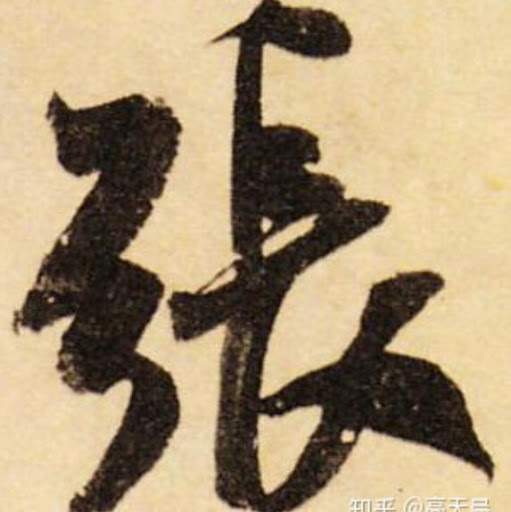 張
知乎 @高天昊